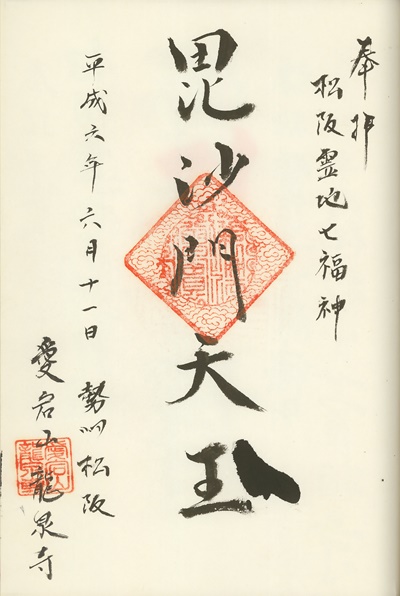 奉拝
松阪霊地七福神
毘沙門天王
平成六年六月十一日
勢州松阪
愛宕山龍泉寺